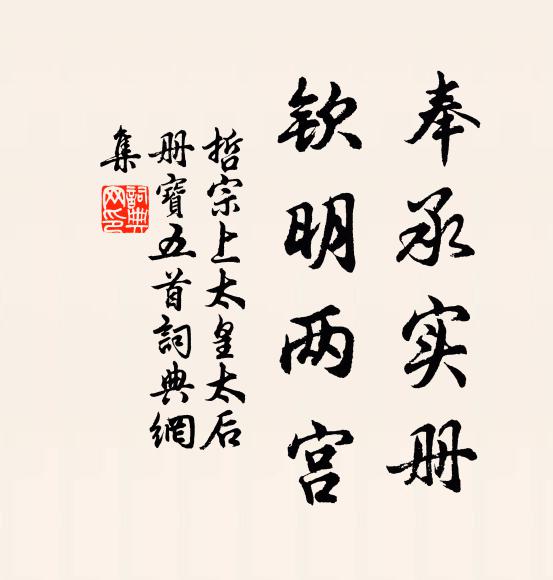 奉承实册
钦明两宫
哲宗上太皇太后
册寶五首詞典網
集
詞典
网印